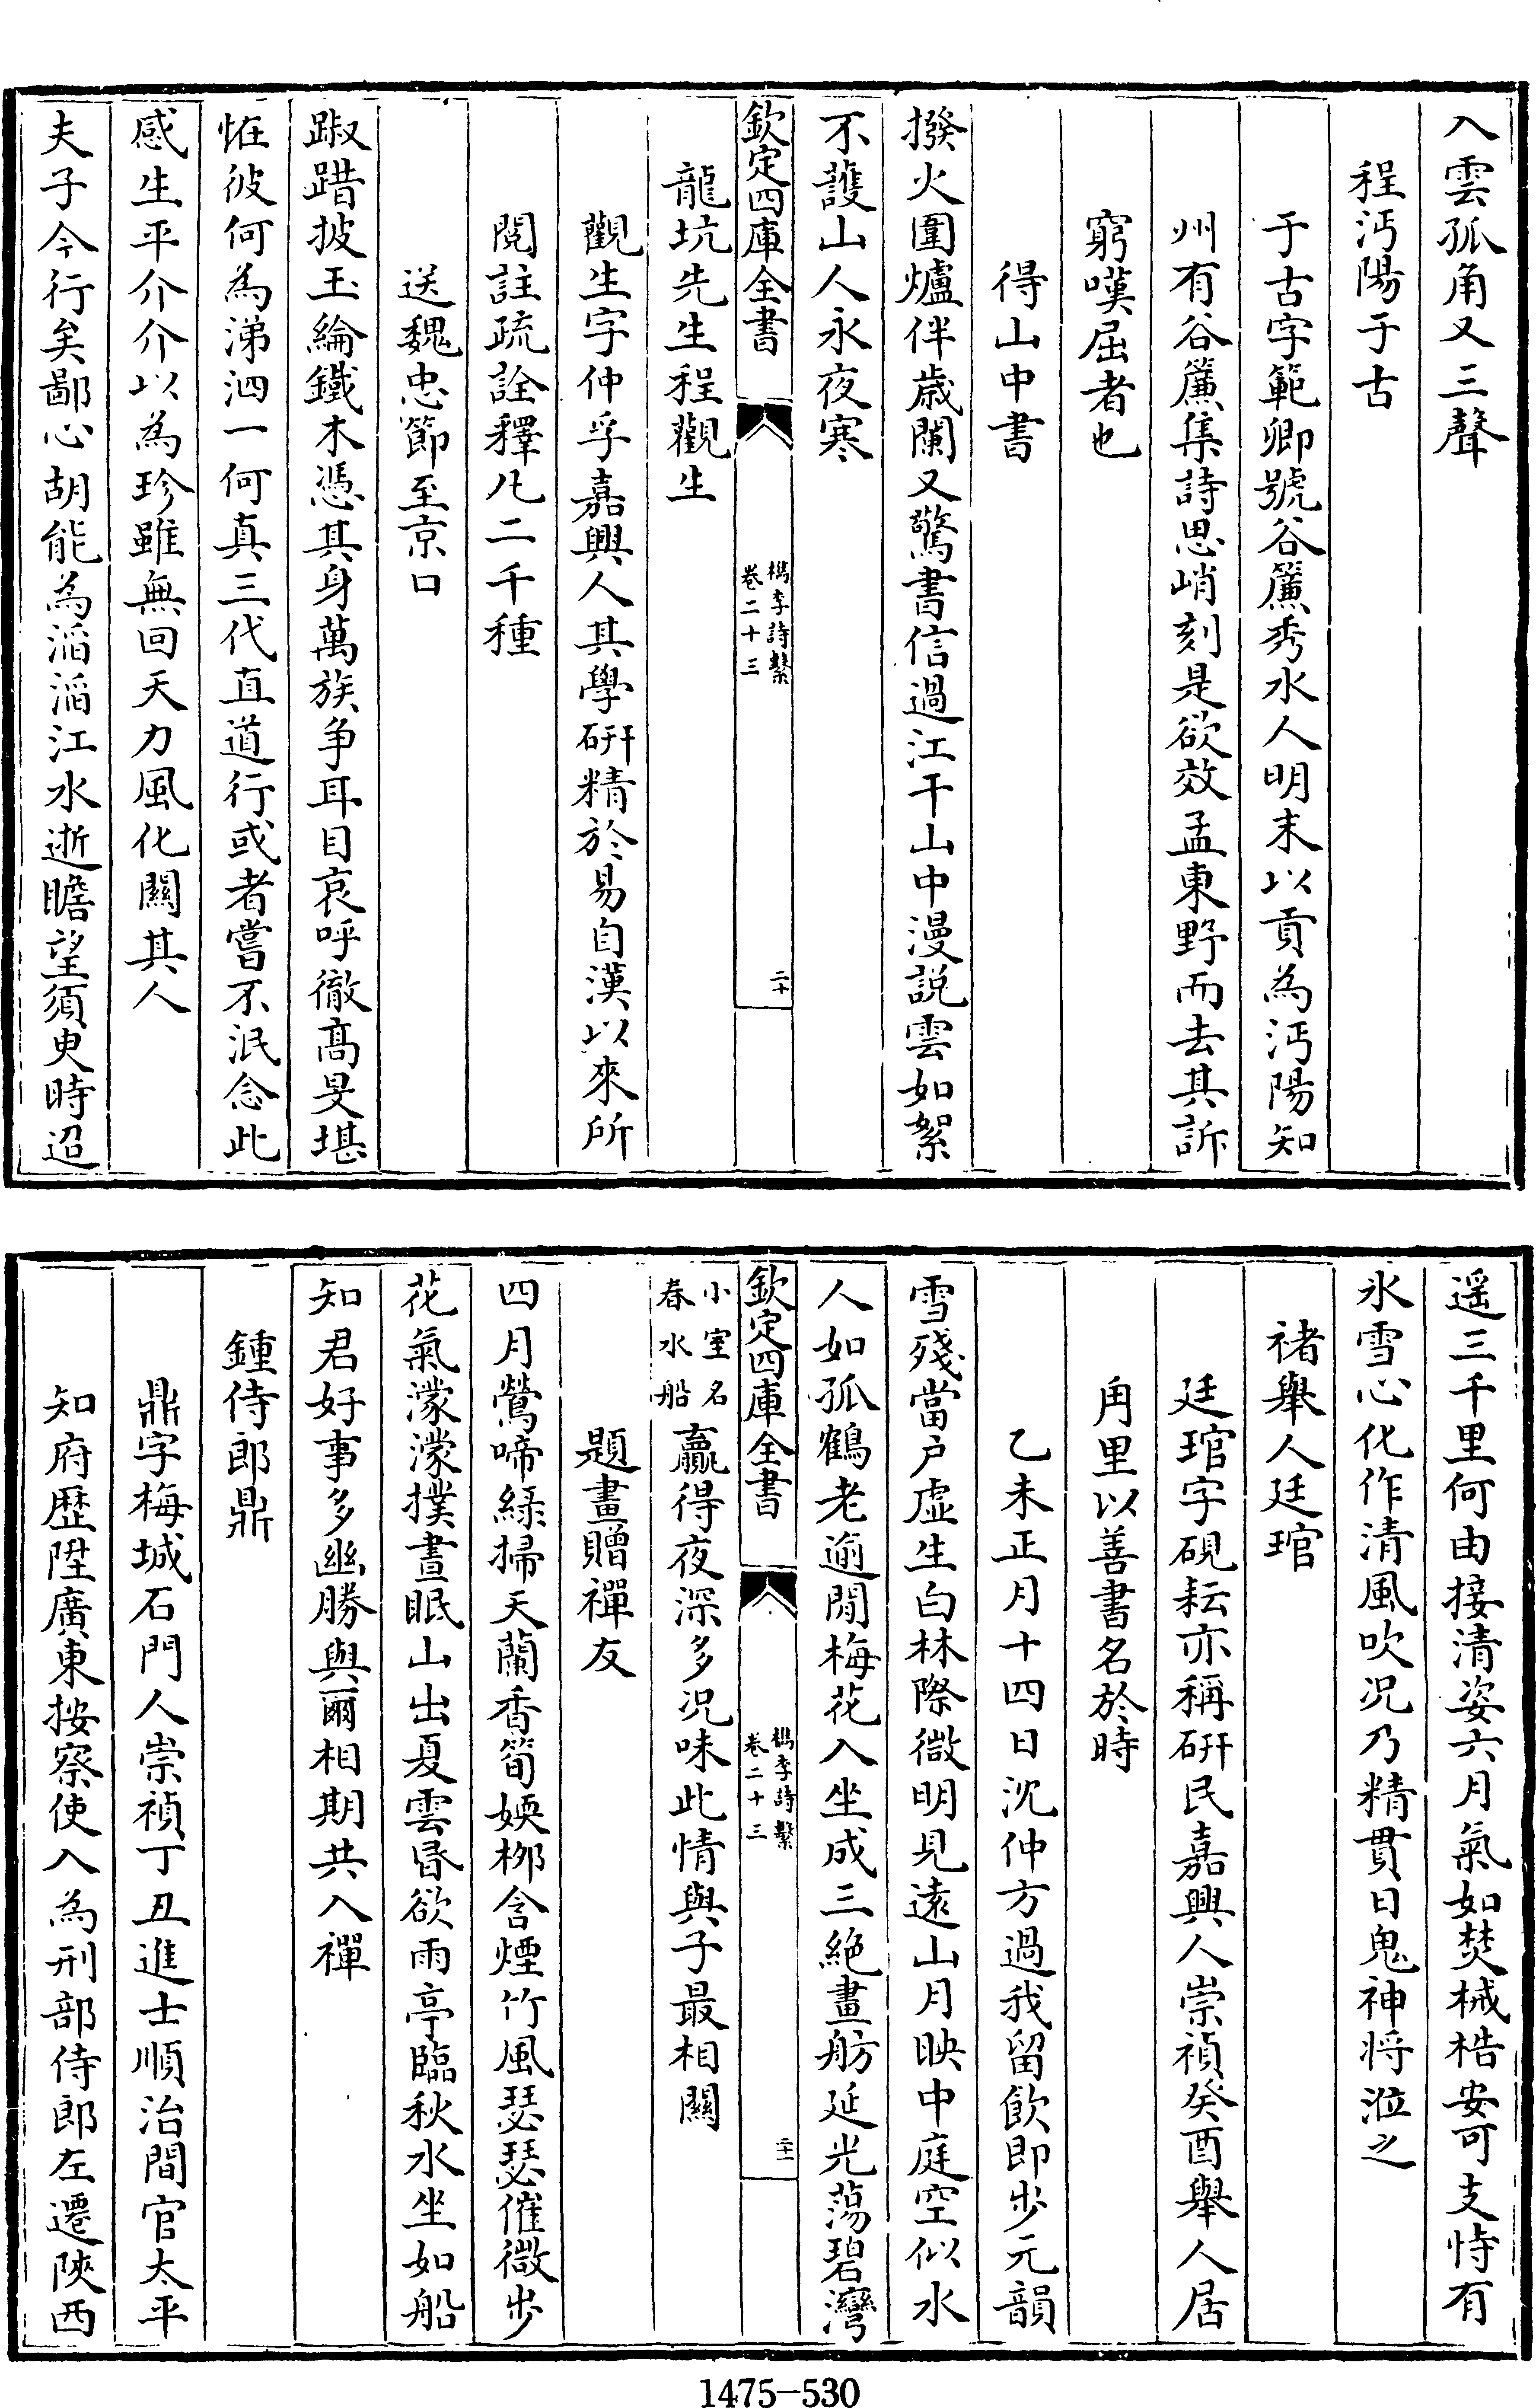 入雲孤角又三聲
程沔陽于古
于古字範卿號谷簾秀水人明末以貢為沔陽知
州有谷簾集詩思峭刻是欲效孟東野而去其訴
窮嘆屈者也
得山中書
撥火圍爐伴歲闌又驚書信過江干山中漫説雲如絮
不護山人永夜寒
欽定四庫全書
檇李詩繫
卷二十三
二十
龍坑先生程觀生
觀生字仲孚嘉興人其學研精於易自漢以來所
閱註疏詮釋凡二千種
送魏忠節至京口
踧踖披玉綸鐵木憑其身萬族争耳目哀呼徹髙旻堪
恠彼何為涕泗一何真三代直道行或者嘗不泯念此
感生平介介以為珍雖無回天力風化關其人
夫子今行矣鄙心胡能為滔滔江水逝瞻望須臾時迢
遥三千里何由接清姿六月氣如焚械梏安可支恃有
氷雪心化作清風吹况乃精貫日鬼神將涖之
禇舉人廷琯
廷琯字硯耘亦稱研民嘉興人崇禎癸酉舉人居
甪里以善書名於時
乙未正月十四日沈仲方過我留飲即步元韻
雪殘當户虛生白林際微明見逺山月映中庭空似水
人如孤鶴老逾閒梅花入坐成三絶畫舫延光蕩碧灣
小室名
春水船
贏得夜深多况味此情與子最相關
欽定四庫全書
檇李詩繫
卷二十三
二十一
題畫贈禪友
四月鶯啼緑掃天蘭香筍媆桞含煙竹風瑟瑟催微步
花氣濛濛撲晝眠山出夏雲昏欲雨亭臨秋水坐如船
知君好事多幽勝與爾相期共入禪
鍾侍郎鼎
鼎字梅城石門人崇禎丁丑進士順治間官太平
知府歴陞廣東按察使入為刑部侍郎左遷陜西
1475-530